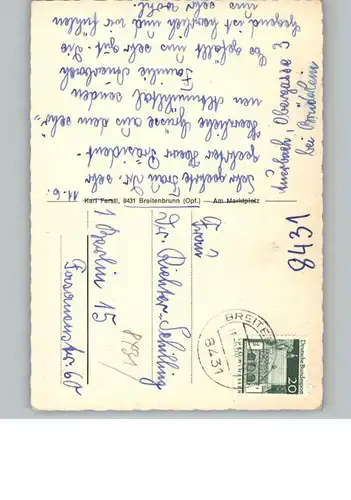 11.6.
Sehr geehrte Frau Dr., sehr
geehrter Herr Präsident -
Herzliche Grüsse aus dem
Altmühltal senden
Familie Auerbach
Es gefällt uns sehr gut. Die
Gegend ist herrlich und wir fühlen
uns sehr wohl.
Auerbach, Obergasse 3
bei
8431
Karl Ferstl, 8431 Breitenbrunn (Opf.) — Am Marktplatz
Frau
Dr. Richter-Schilling
8431
1 Berlin 15
Fasanenstr. 60
BREITE
8431
Deutsche Bundespost
20